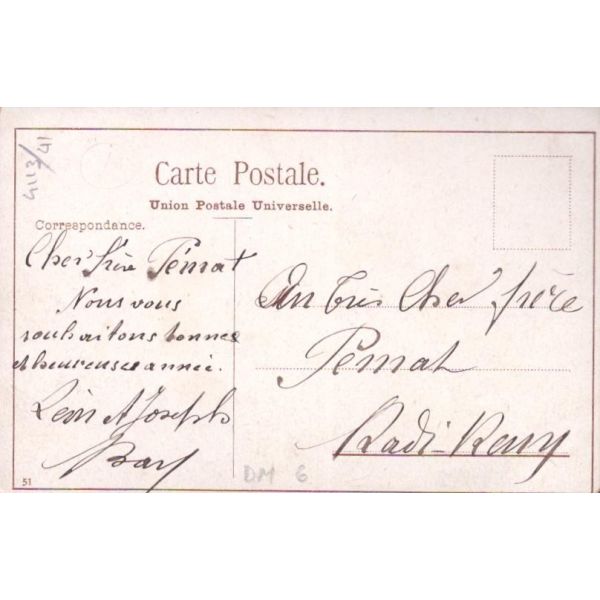 4113/41
Carte Postale.
Union Postale Universelle.
Correspondance.
Cher frère Pémat
Nous vous
souhaitons bonnes
et heureuses année.
Léon et Joseph
Bay
Au très Cher frère
Pémat
Kadi-Keuy
51
DM 6